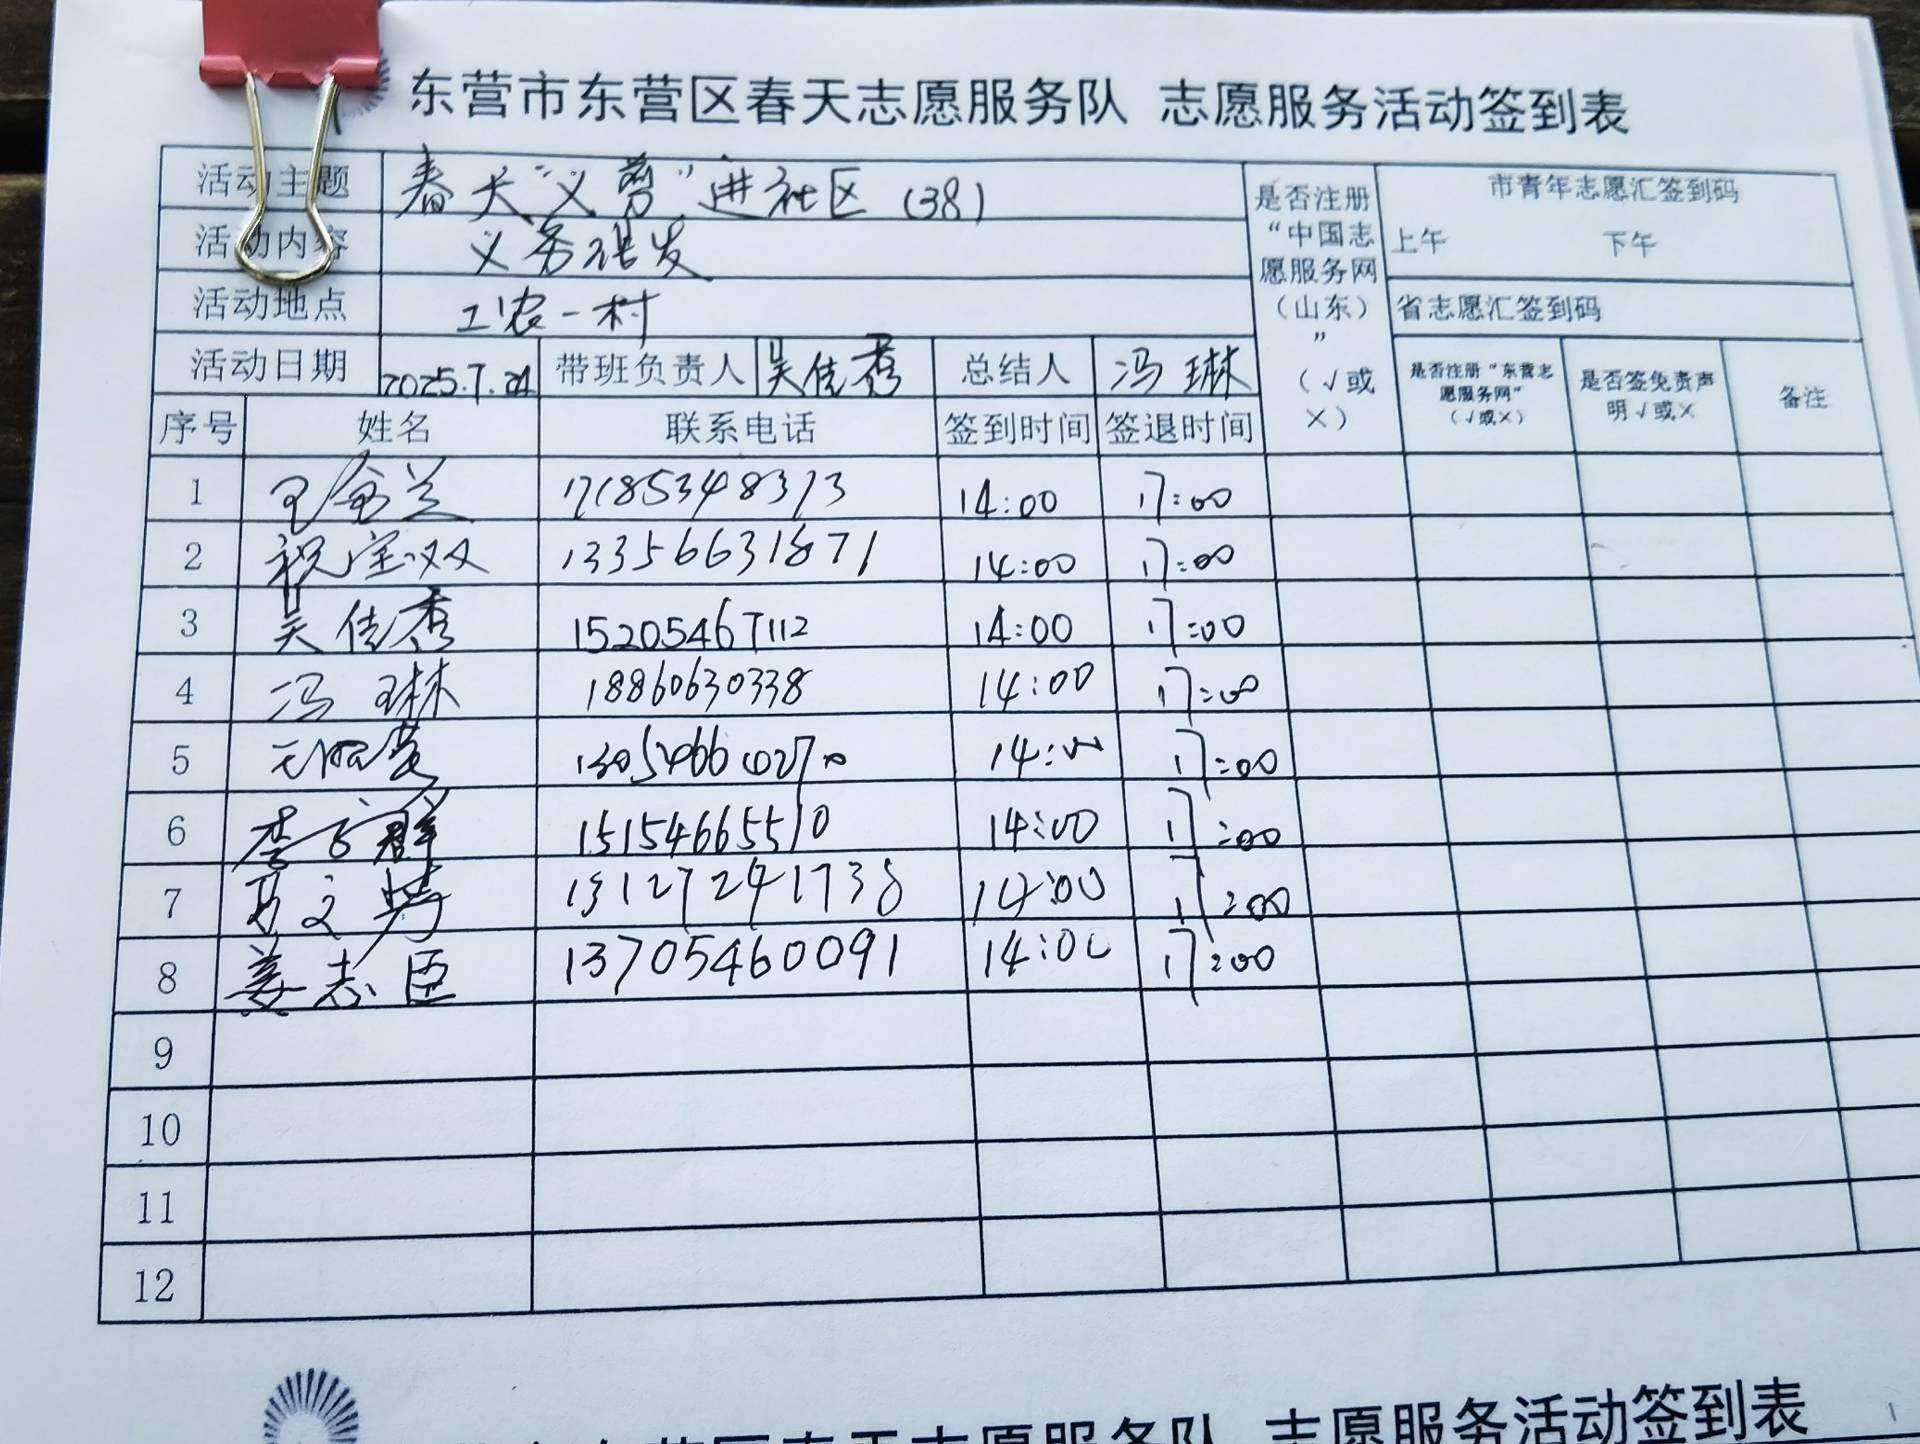 东营市东营区春天志愿服务队 志愿服务活动签到表
活动主题 春天“义剪”进社区(38)
活动内容 义务理发
活动地点 工农一村
活动日期 2025.7.24 带班负责人 吴佳秀 总结人 冯琳
是否注册“中国志愿服务网（山东）”（√或×）
市青年志愿汇签到码
上午 下午
省志愿汇签到码
是否注册“东营志愿服务网”（√或×） 是否签免责声明√或× 备注
序号 姓名 联系电话 签到时间 签退时间
1 14:00 17:00
2 祝宝双 13356631871 14:00 17:00
3 吴佳秀 15205467112 14:00 17:00
4 冯琳 18860630338 14:00 17:00
5 14:00 17:00
6 李子群 15154665510 14:00 17:00
7 14:00 17:00
8 姜志臣 13705460091 14:00 17:00
9
10
11
12
志愿服务活动签到表